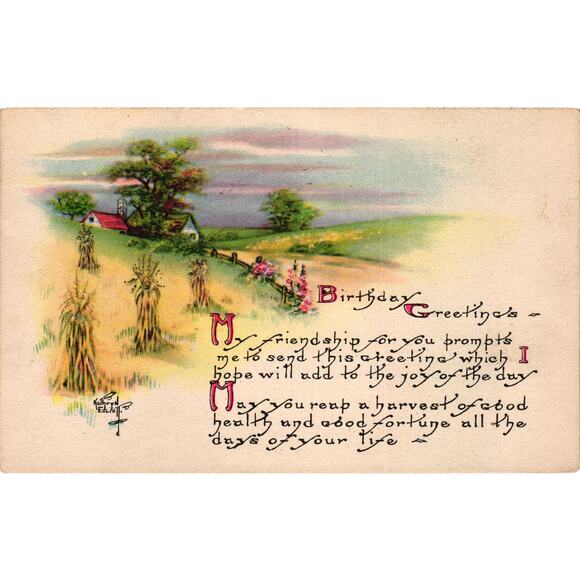 Birthday Greetings ~
My friendship for you prompts
me to send this Greeting which I
hope will add to the joy of the day
May you reap a harvest of Good
health and Good fortune all the
days of your life ~
Kathryn